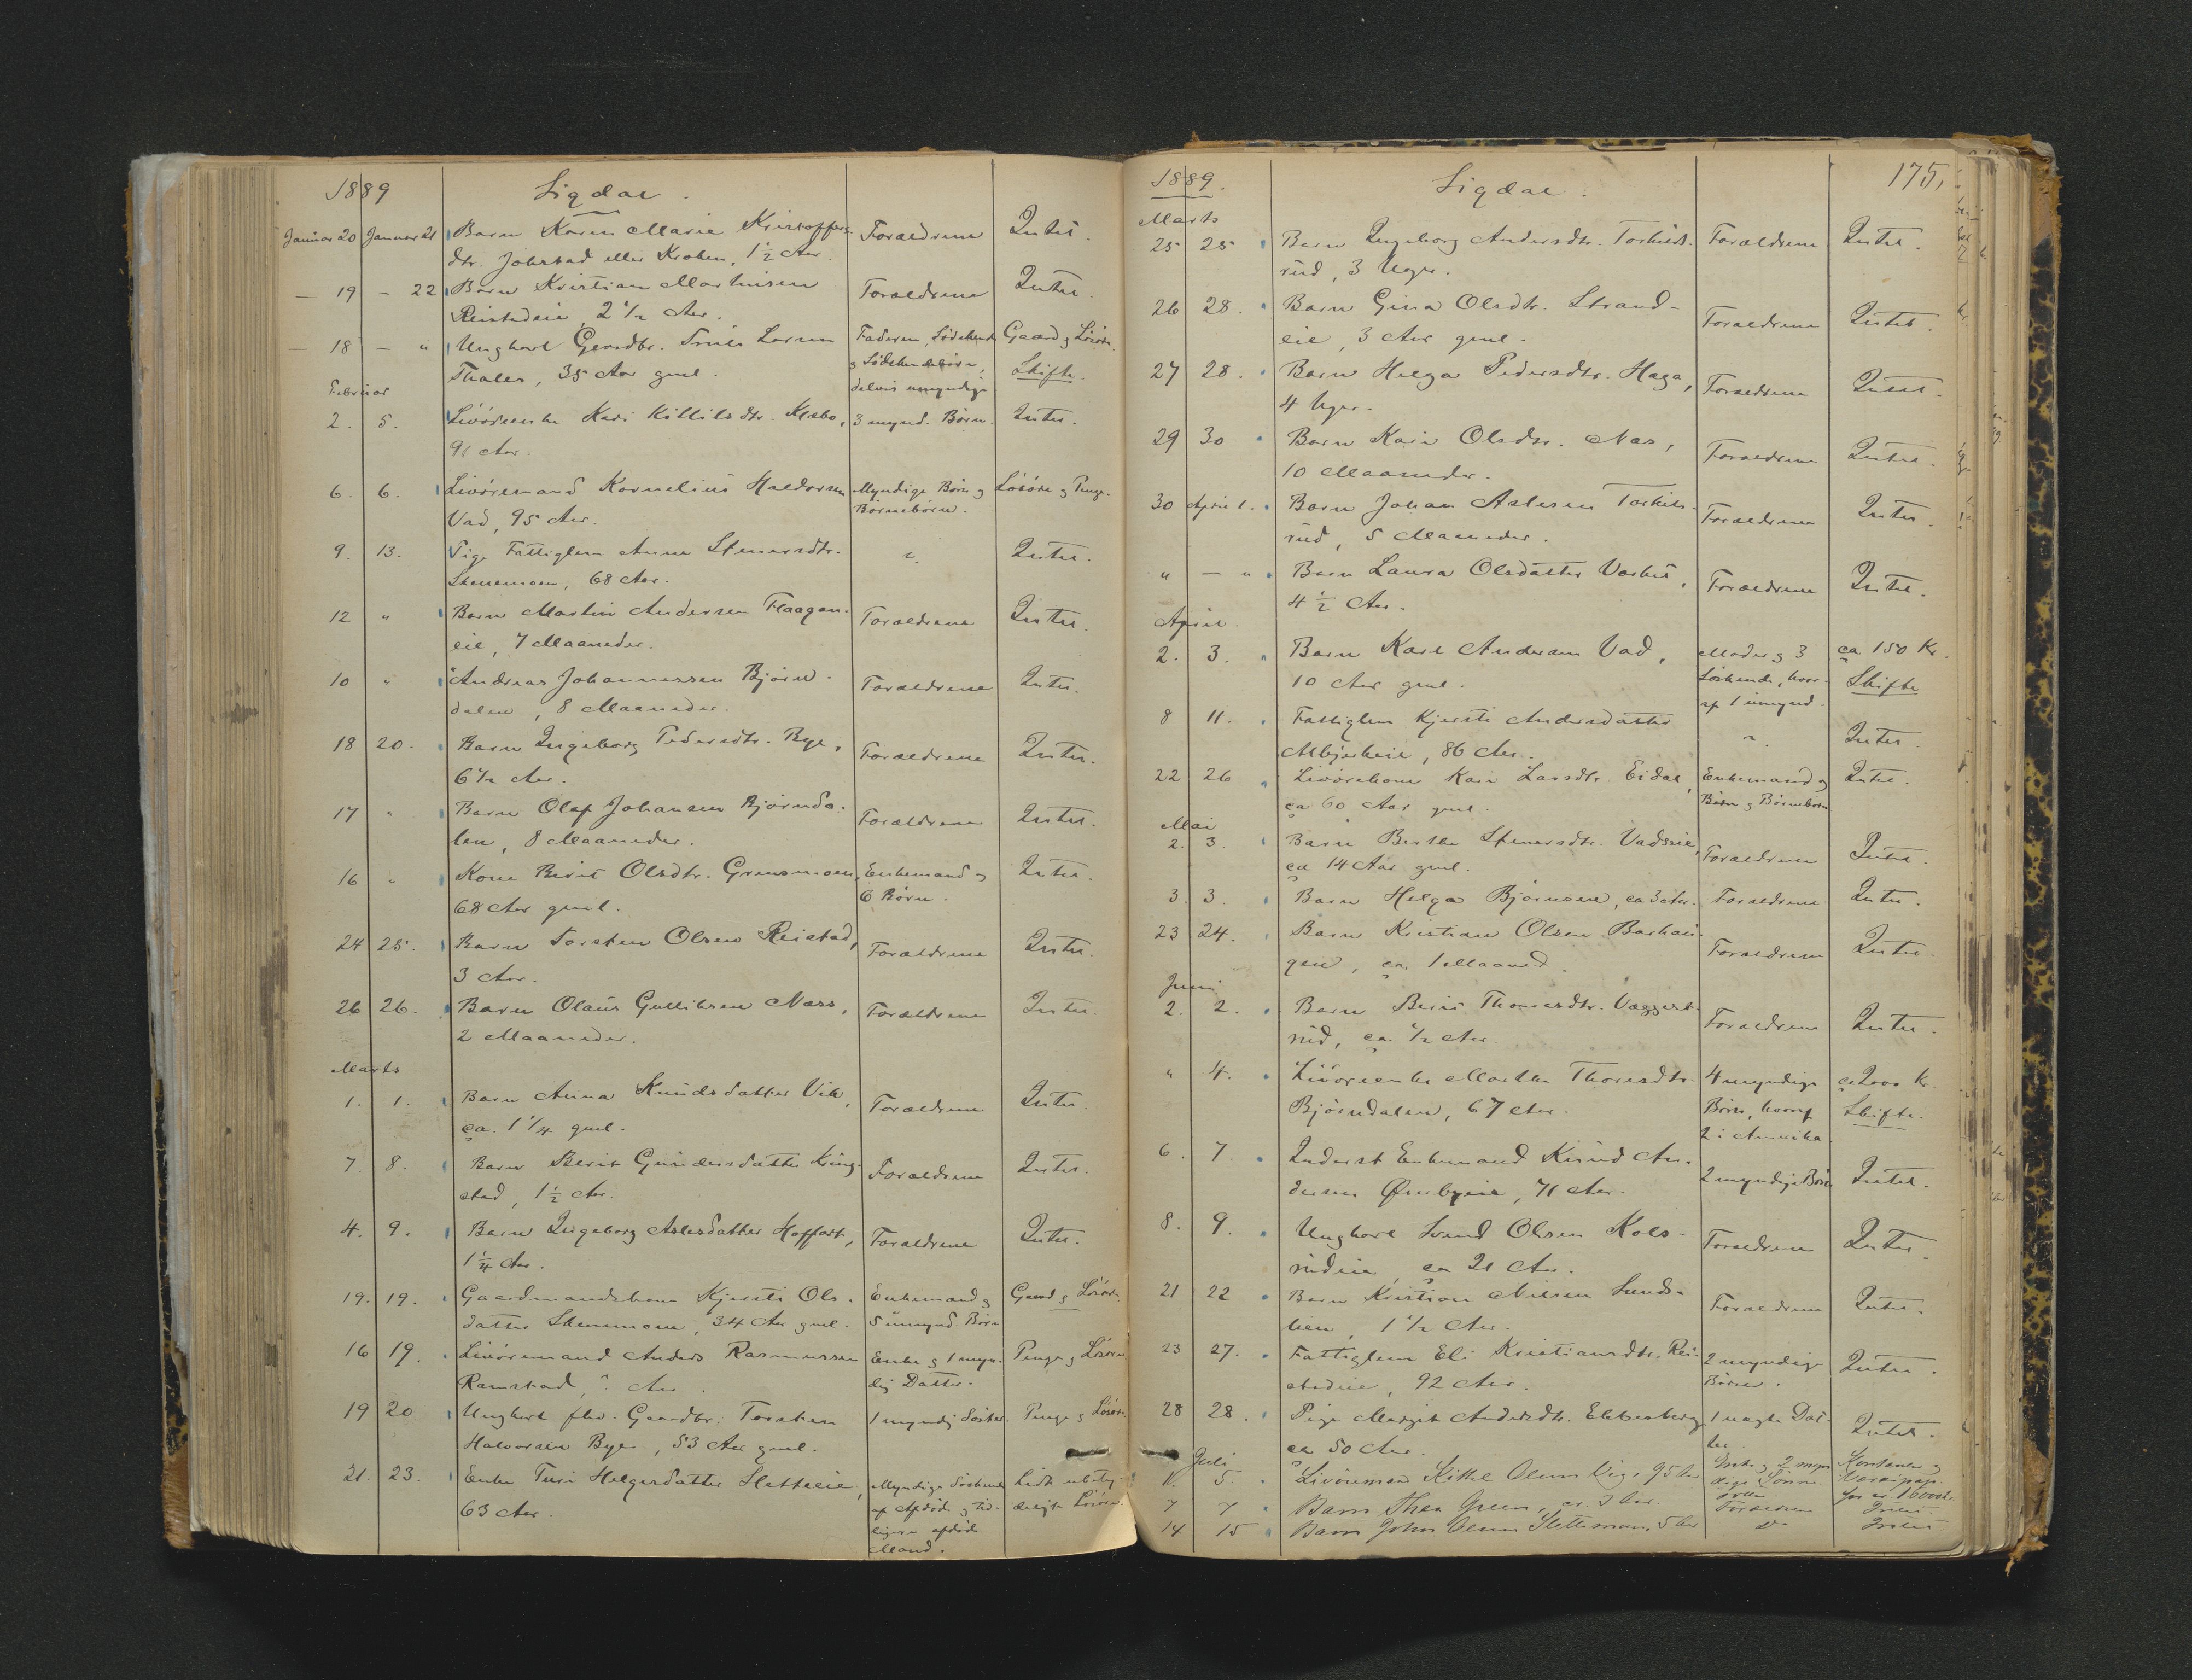 1889
Sigdal.
Januar 20 Januar 21 Barn Karen Marie Kristoffers- Forældrene Intet.
dtr. Johrstad eller Kroken, 1½ Aar.
— 19 — 22 Barn Kristian Martinsen Forældrene Intet.
Reistadeie, 2½ Aar.
— 18 — " Ungkarl Gerdbr. Larsen Faderen, Sødskende Gaard og Løsøre.
Thales, 35 Aar gml. og Sødskendebørn, Skifte.
delvis umyndige
Februar
2. 5. Livøreenke Kari Killilsdtr. Mæbo, 3 mynd. Børn. Intet.
91 Aar.
6. 6. Livøremand Kornelius Haldorsen Myndige Børn og Løsøre og Penge.
Vad, 95 Aar. Børnebørn.
9. 13. Pige Fattiglem Anne Stenersdtr. Intet.
Skenemoen, 68 Aar.
12 " Barn Martin Andersen Haagan- Forældrene Intet.
eie, 7 Maaneder.
10 " Andreas Johannessen Bjørn- Forældrene Intet.
dalen, 8 Maaneder.
18 20. Barn Ingeborg Pedersdtr. Bye, Forældrene Intet.
6½ Aar.
17 " Barn Olaf Johansen Bjørnda- Forældrene Intet.
len, 8 Maaneder.
16 " Kone Berit Olsdtr. Grensmoen, Enkemand og Intet.
68 Aar gml. 6 Børn.
24 25. Barn Torsten Olsen Reistad, Forældrene Intet.
3 Aar.
26 26. Barn Olaus Gulliksen Næss, Forældrene Intet.
2 Maaneder.
Marts
1. 1. Barn Anna Knudsdatter Vik, Forældrene Intet.
ca. 1¼ gml.
7. 8. Barn Berit Gundersdatter Kring- Forældrene Intet.
stad, 1½ Aar.
4. 9. Barn Ingeborg Aslesdatter Hoffart, Forældrene Intet.
1¼ Aar.
19. 19. Gaardmandskone Kjersti Ols- Enkemand og Gaard og Løsøre.
datter Skenemoen, 34 Aar gml. 5 umynd. Børn
16 19. Livøremand Anders Rasmussen Enke og 1 myn- Penge og Løsøre.
Ramstad, ? Aar. dig Datter.
19 20 Ungkarl fhv. Gaardbr. Torsten 1 myndig Søster. Penge og Løsøre.
Halvorsen Bye, 53 Aar gml.
21. 23. Enke Turi Helgersdatter Sletteeie, Myndige Søskende Lidt ubety-
63 Aar. af Afdøde og tid- deligt Løsøre.
ligere afdøde
Mand.
1889.
Sigdal.
175,
Marts
25 25 Barn Ingeborg Andersdtr. Torkils- Forældrene Intet.
rud, 3 Uger.
26 28. Barn Gina Olsdtr. Strand- Forældrene Intet.
eie, 3 Aar gml.
27 28. Barn Helga Pedersdtr. Haga, Forældrene Intet.
4 Uger.
29 30 Barn Kari Olsdtr. Næs, Forældrene Intet.
10 Maaneder.
30 April 1. Barn Johan Aslesen Torkils- Forældrene Intet.
rud, 5 Maaneder.
" — " Barn Laura Olsdatter Vaskit, Forældrene Intet.
4½ Aar.
April.
2. 3. Barn Karl Andersen Vad, Moder og 3 ca 150 Kr.
10 Aar gml. Søskende, hvor- Skifte
af 1 umynd.
8 11. Fattiglem Kjersti Andersdatter Intet.
86 Aar.
22 26 Livørekone Kari Larsdtr. Eidal, Enkemand og Intet.
ca 60 Aar gml. Børn og Børnebørn
Mai
2. 3. Barn Berthe Stenersdtr. Vadseie, Forældrene Intet.
ca 14 Aar gml.
3. 3. Barn Helga Bjørnsen, ca 3 Aar. Forældrene Intet.
23 24. Barn Kristian Olsen Barhau- Forældrene Intet.
gen, ca. 1 Maaned.
Juni
2. 2. Barn Berit Thomesdtr. Væggers- Forældrene Intet.
rud, ca. ½ Aar.
" 4. Livøreenke Marthe Thoresdtr. 4 myndige ca 2000 Kr.
Bjørndalen, 67 Aar. Børn, hvoraf Skifte.
2 i Amerika.
6. 7. Inderst Enkemand Knud An- 2 myndige Børn Intet.
dersen Ørenbyeie, 71 Aar.
8. 9. Ungkarl Svend Olsen Kols- Forældrene Intet.
rudeie, ca 21 Aar.
21 22 Barn Kristian Nilsen Sunds- Forældrene Intet.
lien, 1½ Aar.
23 27. Fattiglem Eli Kristiansdtr. Rei- 2 myndige Intet.
stadeie, 92 Aar. Børn.
28 28. Pige Margit Andersdtr. Ebbesberg 1 uægte Dat- Intet.
ca 50 Aar. ter.
Juli
1. 5 Livøreman Kittel Olsen Vig, 95 Aar Enke og 2 myn- Kontanter og
dige Sønner Værdipap.
7 7 Barn Thea Green, ca. 3 Aar. Forældrene Intet
14 15 Barn John Olsen Slettemoen, 5 Aar Do Intet